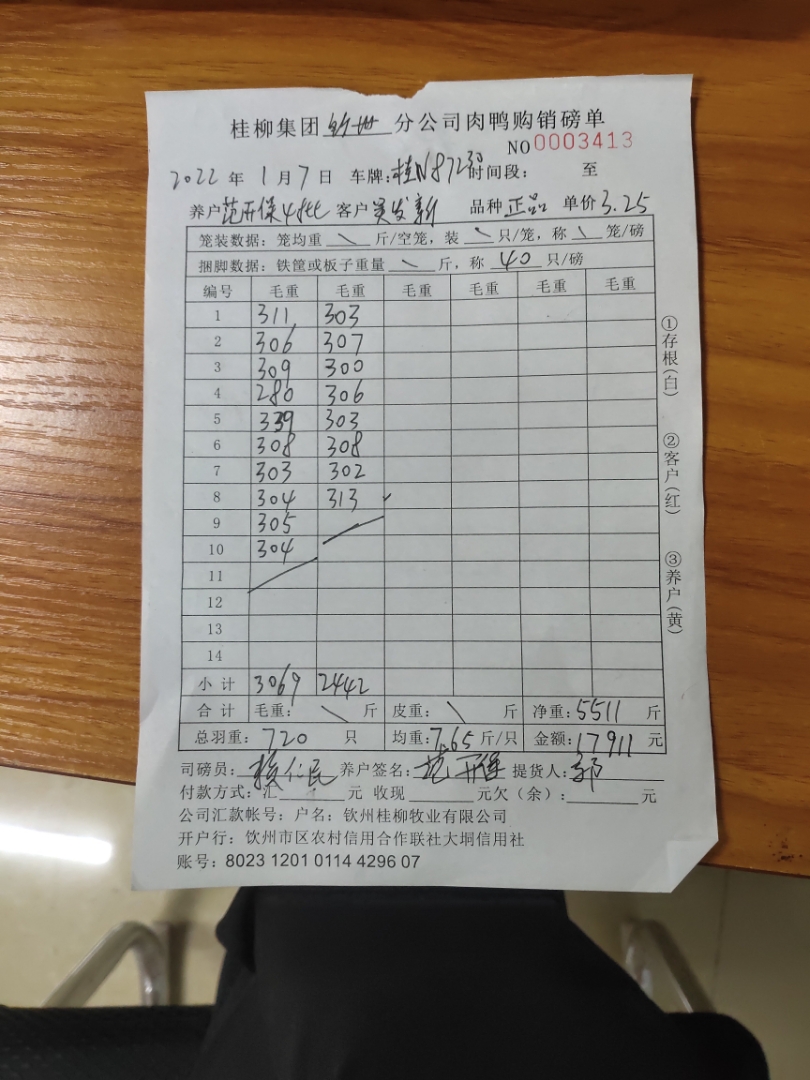 桂柳集团 钦州 分公司肉鸭购销磅单
NO 0003413
2022 年 1 月 7 日 车牌:桂N87230 时间段: 至
养户 范开保 客户 吴发新 品种 正品 单价 3.25
笼装数据: 笼均重 \ 斤/空笼, 装 \ 只/笼, 称 \ 笼/磅
捆脚数据: 铁筐或板子重量 \ 斤, 称 40 只/磅
编号 毛重 毛重 毛重 毛重 毛重 毛重
1 311 303
2 306 307
3 309 300
4 280 306
5 339 303
6 308 308
7 303 302
8 304 313
9 305
10 304
11
12
13
14
小计 3069 2442
合计 毛重: \ 斤 皮重: \ 斤 净重: 5511 斤
总羽重: 720 只 均重: 7.65 斤/只 金额: 17911 元
司磅员: 养户签名: 范开保 提货人: 郭
付款方式: 汇 元 收现 元欠(余): 元
公司汇款帐号: 户名: 钦州桂柳牧业有限公司
开户行: 饮州市区农村信用合作联社大垌信用社
账号: 8023 1201 0114 4296 07
①存根(白)
②客户(红)
③养户(黄)